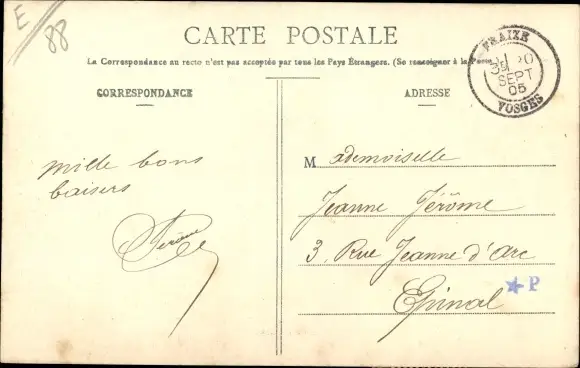 E
88
CARTE POSTALE
La Correspondance au recto n'est pas acceptée par tous les Pays Étrangers. (Se renseigner à la
FRAIZE
20
SEPT
05
VOSGES
CORRESPONDANCE
ADRESSE
Mille bons
baisers
Jérôme
Mademoiselle
Jeanne Jérôme
3, Rue Jeanne d'Arc
Epinal
P